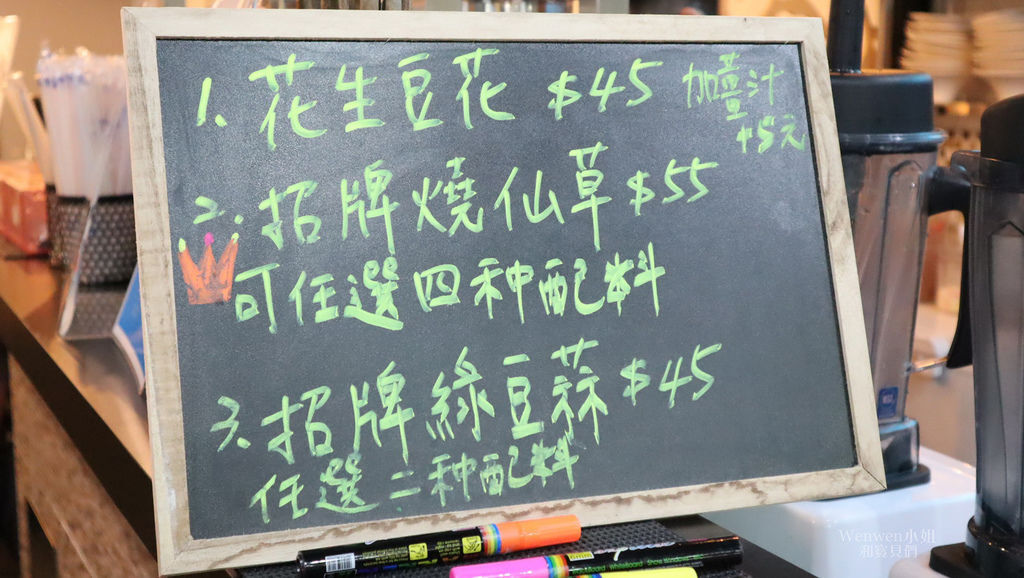 1. 花生豆花 $45 加薑汁
+5元
2. 招牌燒仙草 $55
可任選四种配料
3. 招牌綠豆蒜 $45
任選二种配料
Wenwen小姐
和寶貝們